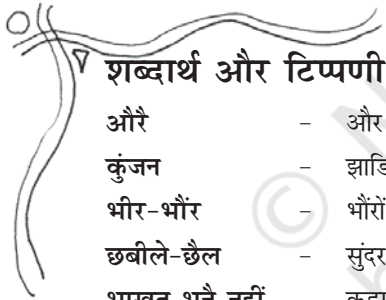 शब्दार्थ और टिप्पणी
औरै – और
कुंजन –
भीर-भौंर – भौंरों
छबीले-छैल – सुंदर